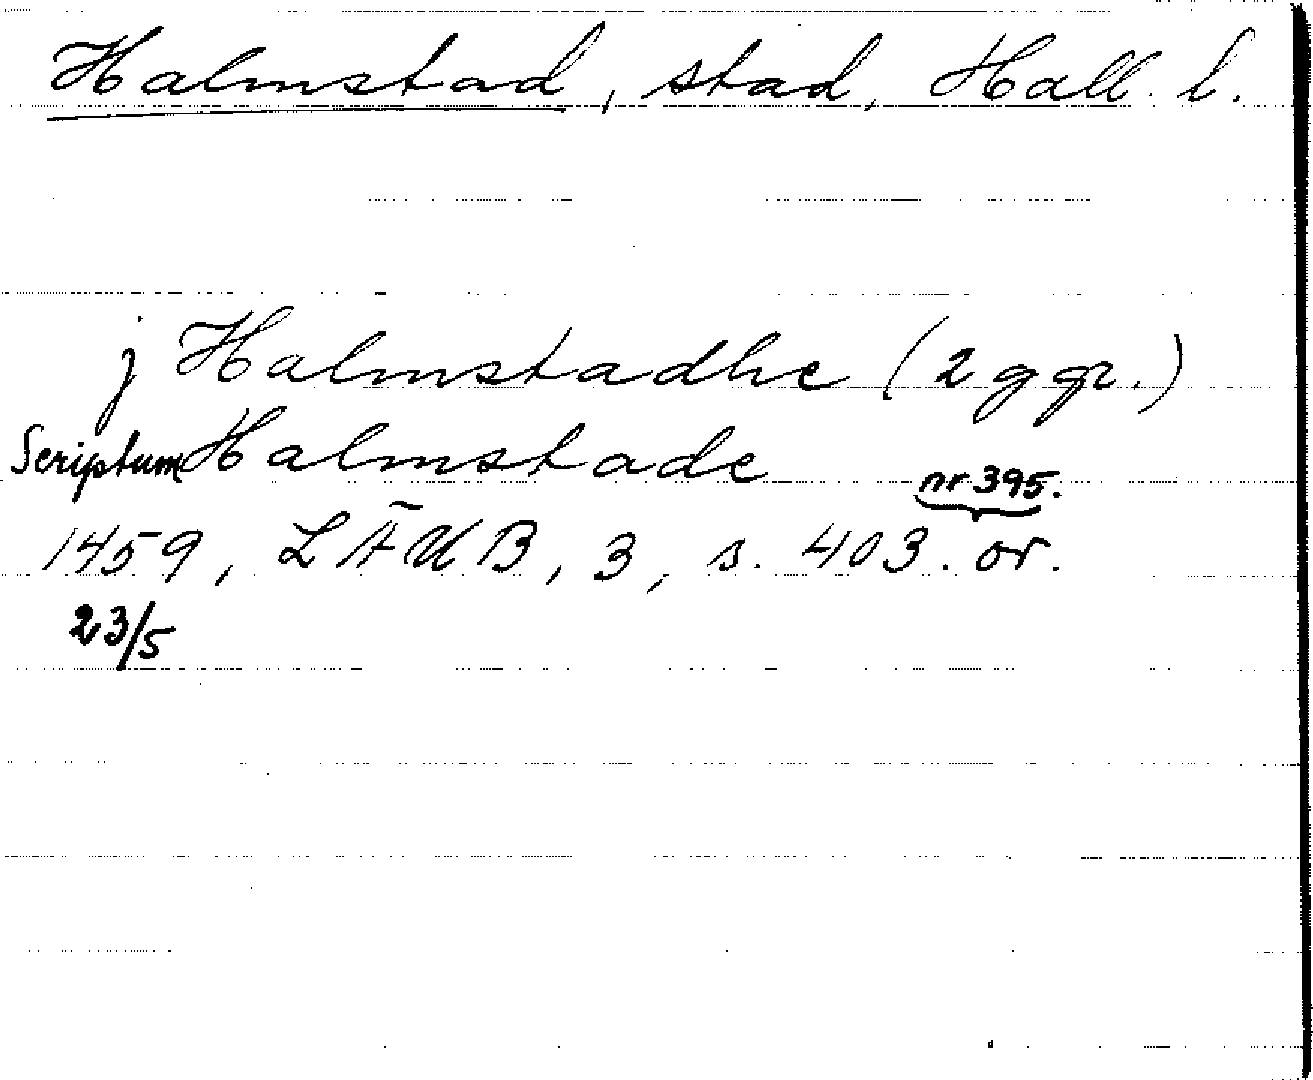 Halmstad, stad, Hall. l.
j Halmstadhe (2 ggr.)
Scriptum Halmstade
nr 395.
1459, LÄUB, 3, s. 403. or.
23/5